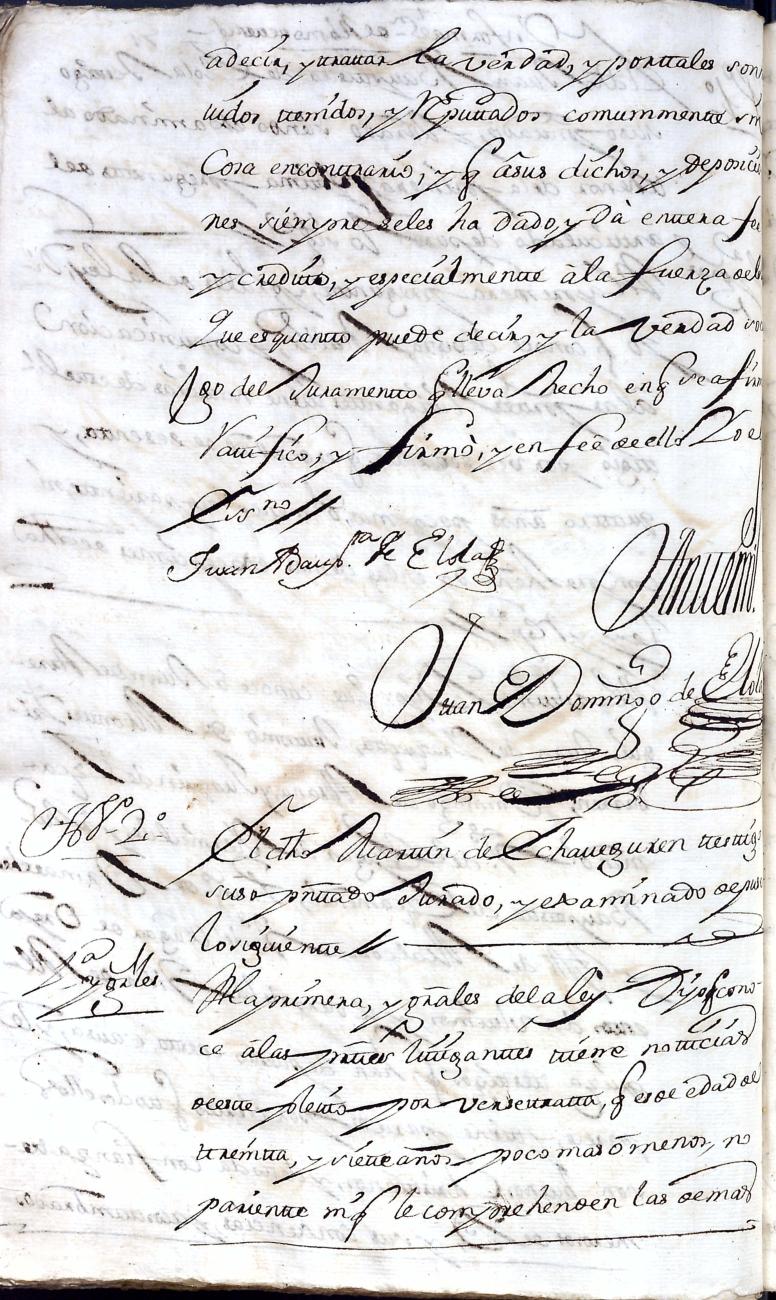 adecir, y tratar la verdad, y por tales son
tidos tenidos, y Reputtados comunmente sin
Cosa en contrario, y q̃ a sus dichos, y deposicio
nes siempre seles ha dado, y Dà entera fee
y creditto, y especialmente à la fuerza del
Que es quantto puede decir, y la verdad so
Jgo del Juramento q̃ lleva hecho en q̃ se afirm
Rattifico, y firmò, y en feè de ello Yo el
Essno //
Juan Bauptta de Elola
Ante mi
Juan Domingo de Elola
tt̃go 2.º
El dho Martin de Echaveguren testigo
suso pñttado Jurado, y examinado depuso
lo siguiente //
1.ª y gñrles
Ala primera, y gñales dela ley. Dijo q̃ cono-
ce à las pñtes littigantes tiene noticias
deeste pleito por verse tratta, q̃ es de edad de
treintta, y siete años poco mas ò menos, no
pariente ni q̃ le comprehenden las demas